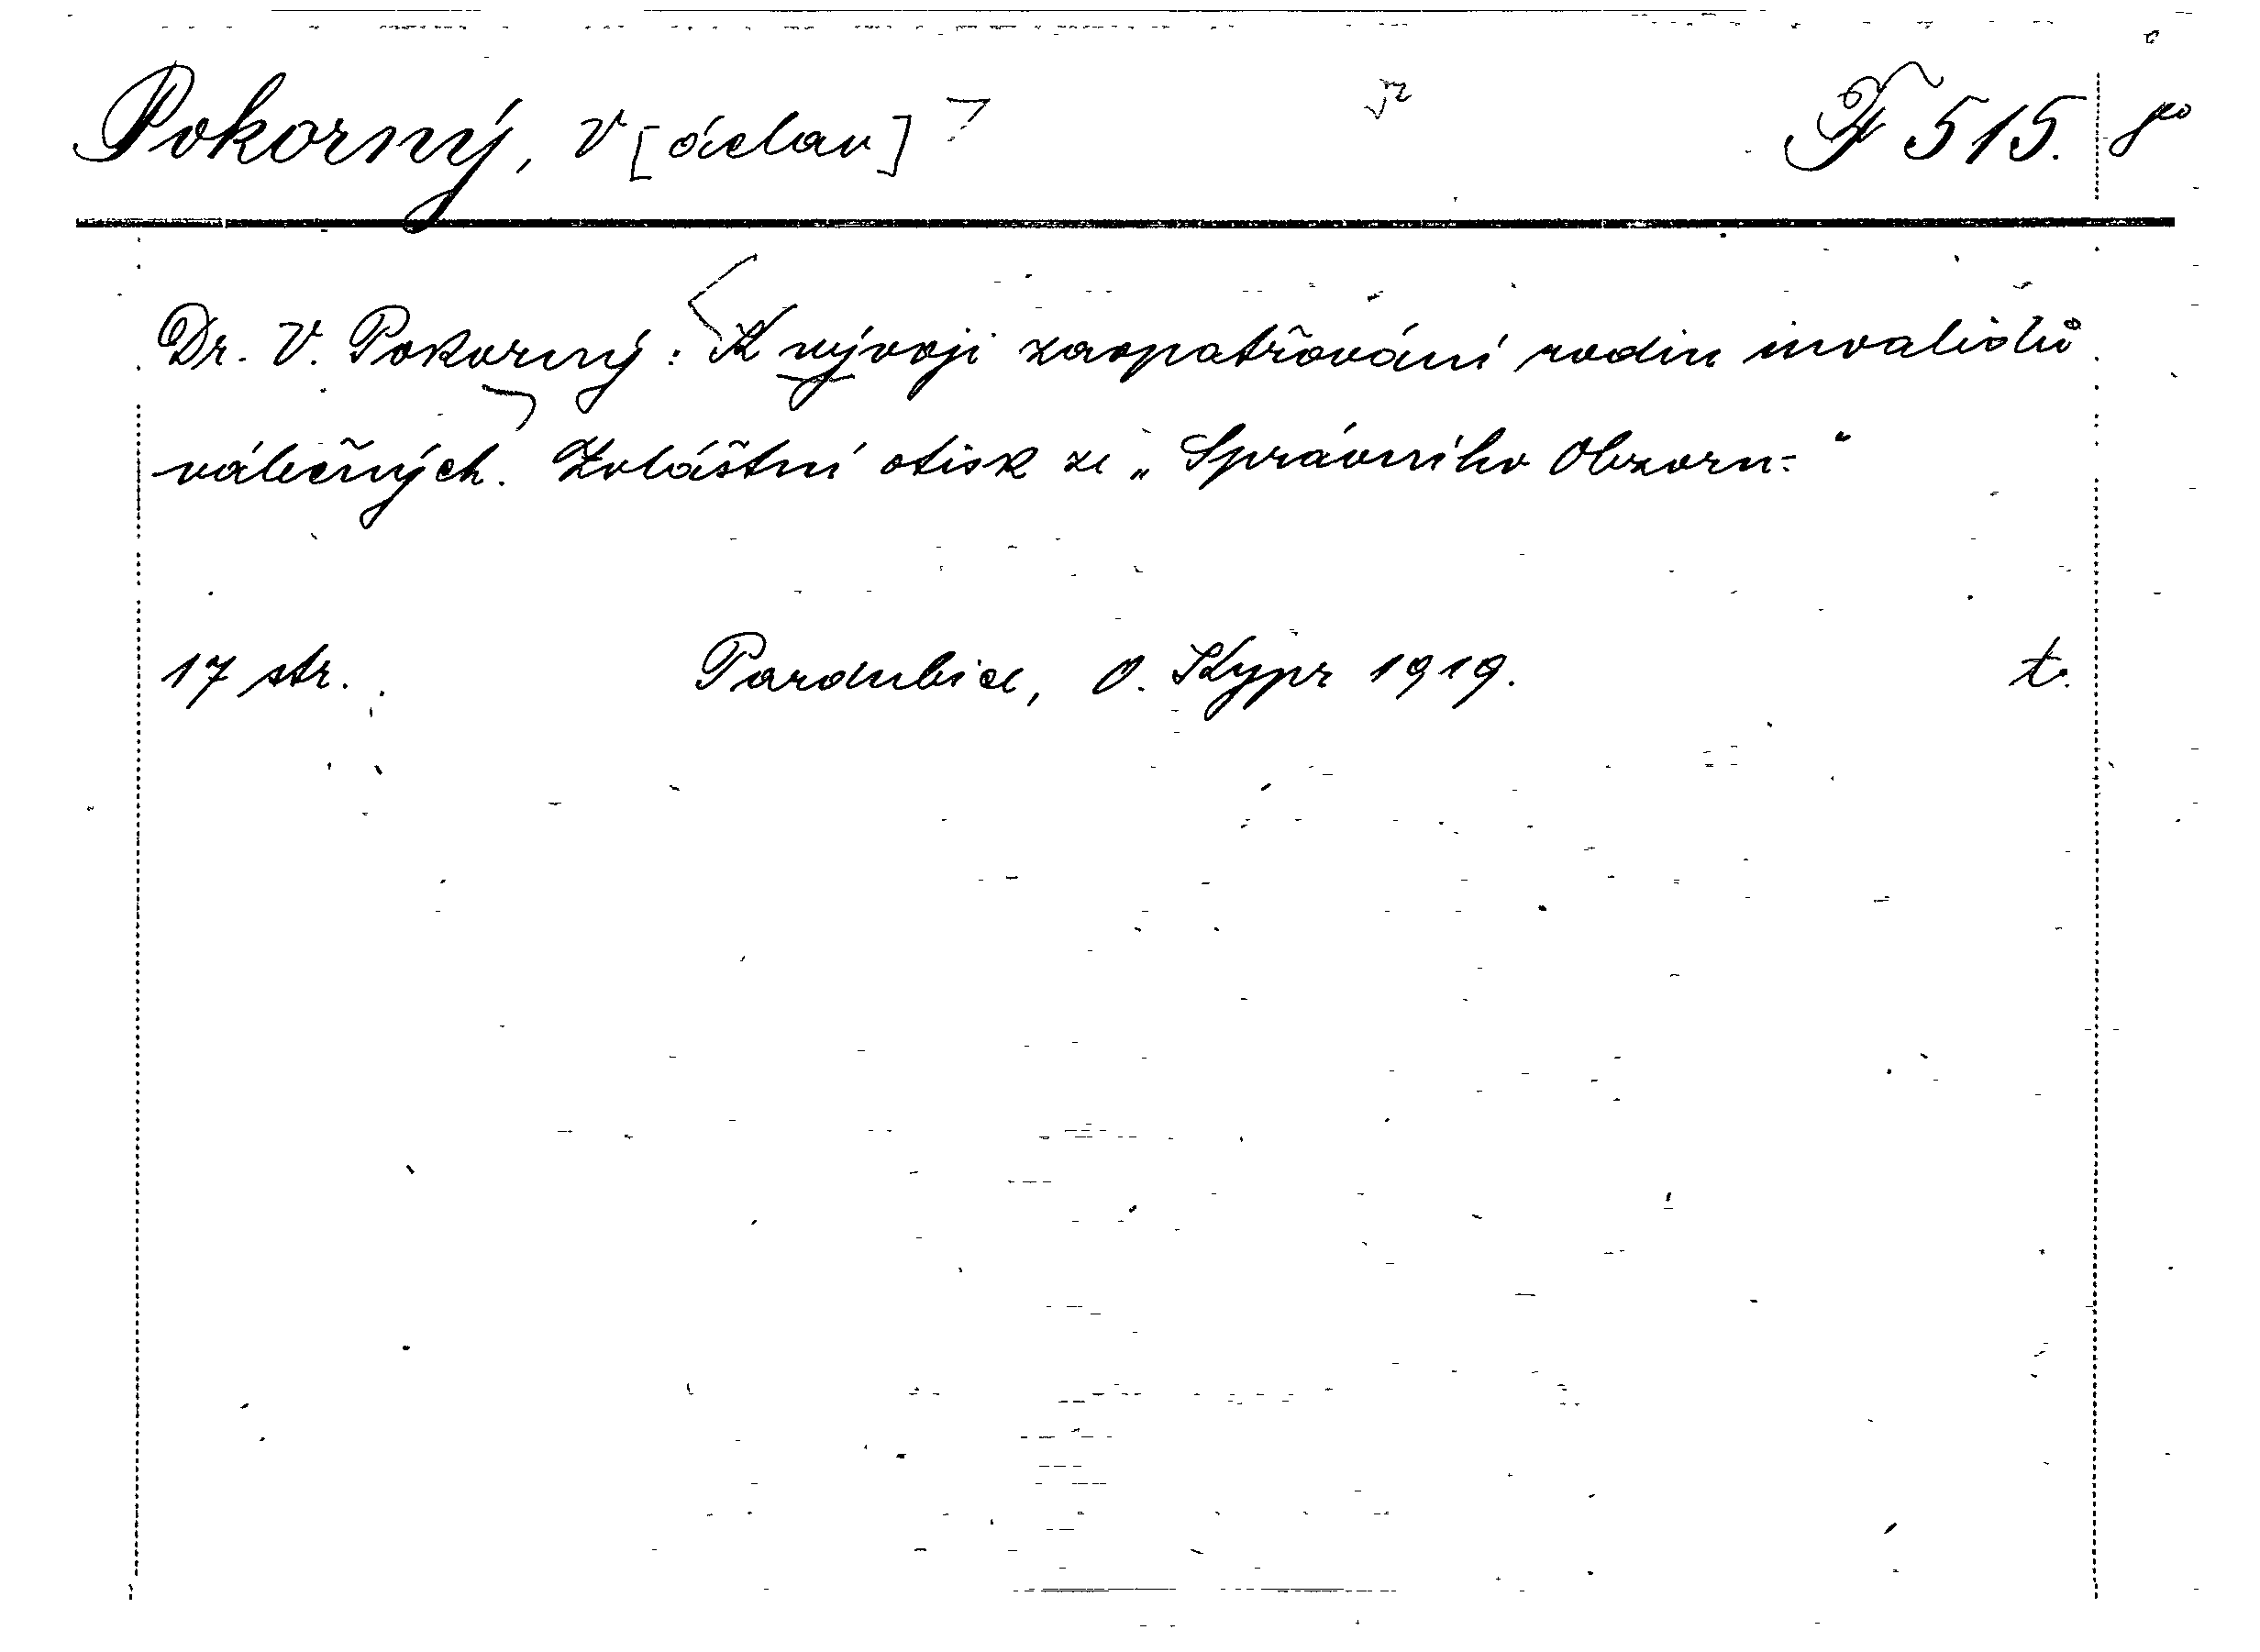 Pokorný, V[áclav] F 515.
Dr. V. Pokorný: K vývoji zaopatřování rodin invalidů
válečných. Zvláštní otisk ze „Správního Obzoru."
17 str. Pardubice, O. Kypr 1919. t.